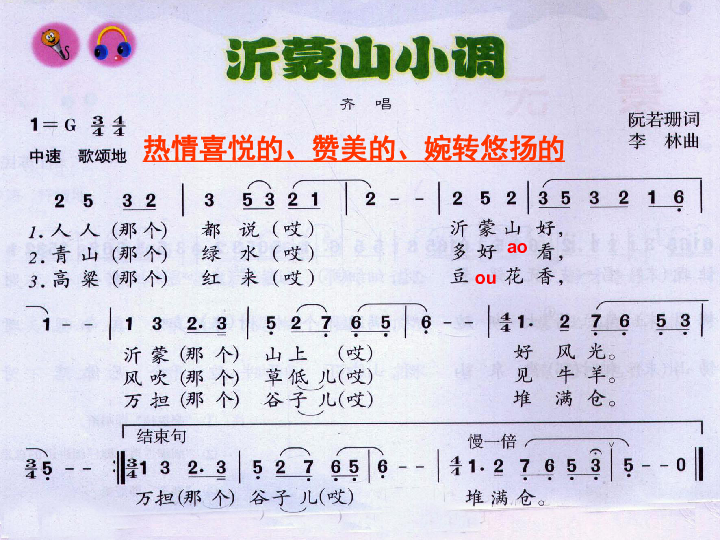 沂蒙山小调
齐 唱
1=G 3/4 4/4
阮若珊词
中速 歌颂地
热情喜悦的、赞美的、婉转悠扬的
李 林曲
2 5 3 2 | 3 5 3 2 1 | 2 - - | 2 5 2 | 3 5 3 2 1 6 |
1.人人(那个) 都说(哎) 沂蒙山好,
2.青山(那个) 绿水(哎) 多好 ao 看,
3.高粱(那个) 红来(哎) 豆 ou 花香,
1 - - | 1 3 2·3 | 5 2 7 6 5 | 6 - - | 4/4 1· 2 7 6 5 3 |
沂蒙(那个) 山上 (哎) 好风光。
风吹(那个) 草低儿(哎) 见牛羊。
万担(那个) 谷子儿(哎) 堆满仓。
结束句 慢一倍
3/4 5 - - :‖ 3/4 1 3 2·3 | 5 2 7 6 5 | 6 - - | 4/4 1· 2 7 6 5 3 | 5 - - 0 ‖
万担(那个) 谷子儿(哎) 堆满仓。